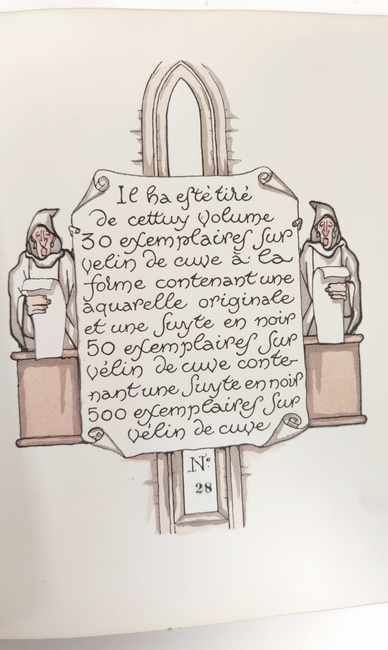 Il ha esté tiré
de cettuy volume
30 exemplaires sur
velin de cuve à la
forme contenant une
aquarelle originale
et une suyte en noir
50 exemplaires sur
vélin de cuve conte-
nant une suyte en noir
500 exemplaires sur
vélin de cuve
N°
28